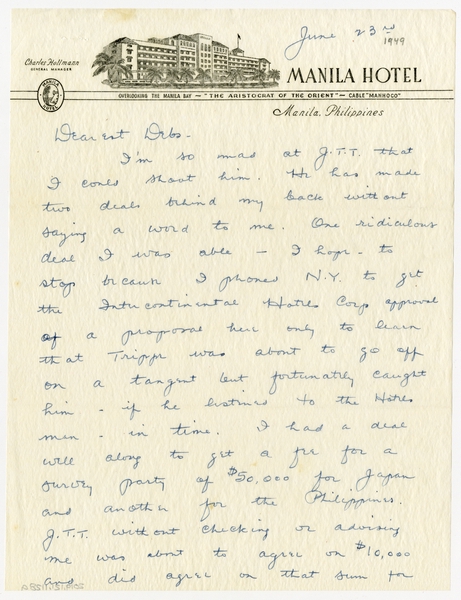 June 23rd
1949
Charles Hollmann
GENERAL MANAGER
MANILA HOTEL
MANILA HOTEL
OVERLOOKING THE MANILA BAY — "THE ARISTOCRAT OF THE ORIENT" — CABLE "MANHOCO"
Manila, Philippines
Dearest Debs-
I'm so mad at J.T.T. that
I could shoot him. He has made
two deals behind my back without
saying a word to me. One ridiculous
deal I was able - I hope - to
stop because I phoned N.Y. to get
the Intercontinental Hotels Corp approval
of a proposal here only to learn
that Trippe was about to go off
on a tangent but fortunately caught
him - if he listens to the Hotels
men - in time. I had a deal
well along to get a fee for a
survey party of $50,000 for Japan
and another for the Philippines.
J.T.T. without checking or advising
me was about to agree on $10,000
and did agree on that sum for